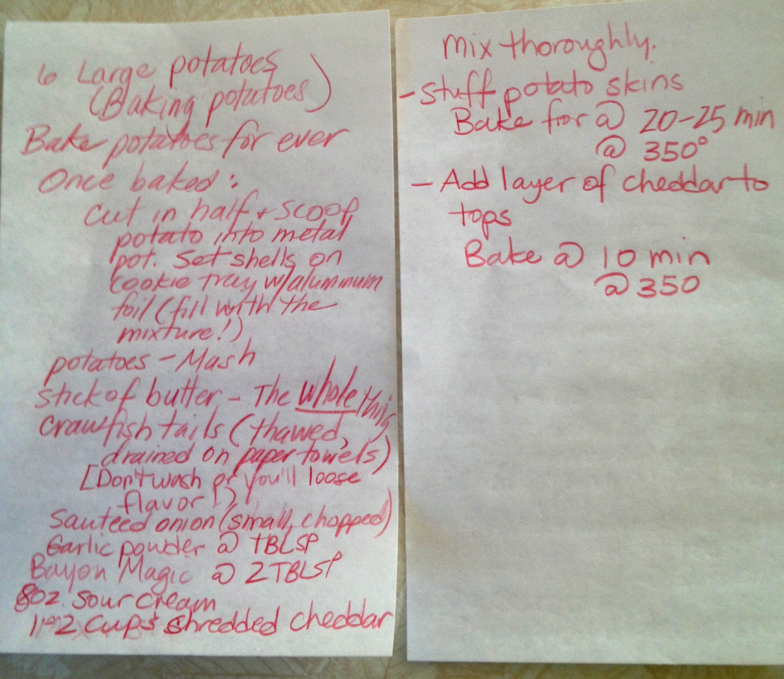 6 Large potatoes
(Baking potatoes)
Bake potatoes for ever
Once baked:
Cut in half + scoop
potato into metal
pot. Set shells on
cookie tray w/alummum
foil (fill with the
mixture!)
potatoes - Mash
stick of butter - The whole thing
crawfish tails (thawed,
drained on paper towels)
[Don't wash or you'll loose
flavor!]
Sauteed onion (small, chopped)
Garlic powder @ TBLSP
Bayou Magic @ 2 TBLSP
8oz. sour cream
1-2 cups shredded cheddar
mix thoroughly.
- Stuff potato skins
Bake for @ 20-25 min
@ 350°
- Add layer of cheddar to
tops
Bake @ 10 min
@ 350